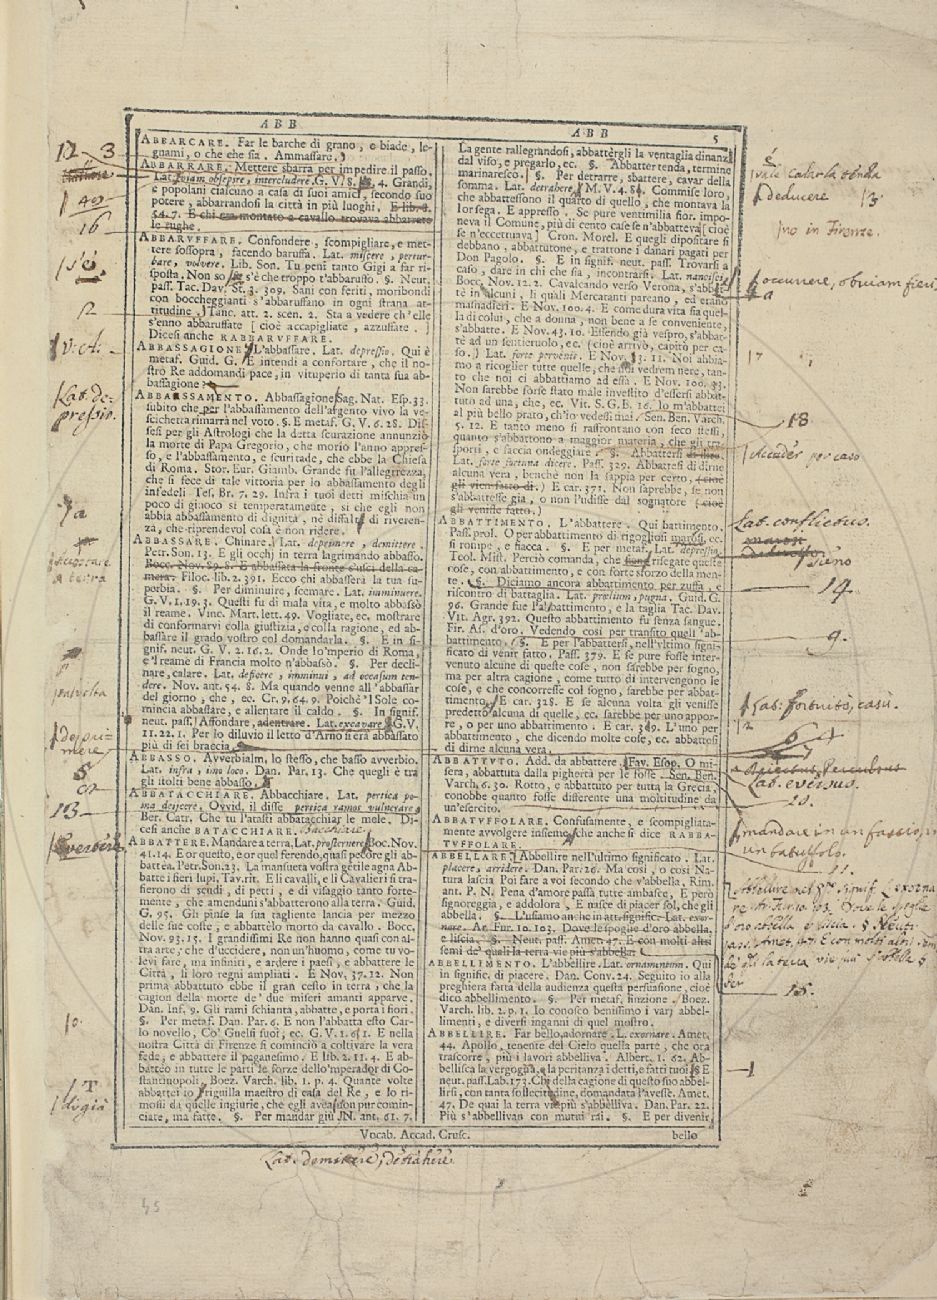 ABB
ABBARCARE. Far le barche di grano, e biade, le-
gnami, o che che sia. Ammassare.
ABBARRARE. Mettere sbarra per impedire il passo.
Lat. viam obsepire, intercludere. G. V. 8. 4. Grandi,
e popolani ciascuno a casa di suoi amici, secondo suo
potere, abbarrandosi la città in più luoghi. E lib. 8.
54. 7. E chi era montato a cavallo trovava abbarrate
le rughe.
ABBARVFFARE. Confondere, scompigliare, e met-
tere sossopra, facendo baruffa. Lat. miscere, pertur-
bare, volvere. Lib. Son. Tu peni tanto Gigi a far ri-
sposta. Non so se s'è che troppo t'abbaruffo. §. Neut.
pass. Tac. Dav. St. 3. 309. Sani con feriti, moribondi
con boccheggianti s'abbaruffano in ogni strana at-
titudine. Tanc. att. 2. scen. 2. Sta a vedere ch'elle
s'enno abbaruffate [cioè accapigliate, azzuffate.]
Dicesi anche RABBARVFFARE.
ABBASSAGIONE. L'abbassare. Lat. depressio. Qui è
metaf. Guid. G. E intendi a confortare, che il no-
stro Re addomandi pace, in vituperio di tanta sua ab-
bassagione.
ABBASSAMENTO. Abbassagione. Sag. Nat. Esp. 33.
subito che per l'abbassamento dell'argento vivo la ve-
scichetta rimarrà nel voto. §. E metaf. G. V. 6. 28. Dis-
sesi per gli Astrologi che la detta scurazione annunziò
la morte di Papa Gregorio, che morìo l'anno appres-
so, e l'abbassamento, e scuritade, che ebbe la Chiesa
di Roma. Stor. Eur. Giamb. Grande fu l'allegrezza,
che si fece di tale vittoria per lo abbassamento degli
infedeli Tes. Br. 7. 29. Infra i tuoi detti mischia un
poco di giuoco sì temperatamente, sì che egli non
abbia abbassamento di dignità, nè diffalta di riveren-
za, che riprendevol cosa è non ridere.
ABBASSARE. Chinare. Lat. deprimere, demittere.
Petr. Son. 13. E gli occhj in terra lagrimando abbasso.
Bocc. Nov. 89. 8. E abbassata la fronte s'uscì della ca-
mera. Filoc. lib. 2. 391. Ecco chi abbasserà la tua su-
perbia. §. Per diminuire, scemare. Lat. imminuere.
G. V. 1. 19. 3. Questi fu di mala vita, e molto abbassò
il reame. Vinc. Mart. lett. 49. Vogliate, ec. mostrare
di conformarvi colla giustizia, e colla ragione, ed ab-
bassare il grado vostro col domandarla. §. E in si-
gnif. neut. G. V. 2. 16. 2. Onde lo'mperio di Roma,
e'l reame di Francia molto n'abbasò. §. Per decli-
nare, calare. Lat. deficere, imminui, ad occasum ten-
dere. Nov. ant. 54. 8. Ma quando venne all'abbassar
del giorno, che, ec. Cr. 9. 64. 9. Poichè'l Sole co-
mincia abbassare, e allentare il caldo. §. In signif.
neut. pass. Affondare, adentrare. Lat. excavare. G. V.
11. 22. 1. Per lo diluvio il letto d'Arno si era abbassato
più di sei braccia.
ABBASSO. Avverbialm, lo stesso, che basso avverbio.
Lat. infra, imo loco. Dan. Par. 13. Che quegli è tra
gli stolti bene abbasso.
ABBATACCHIARE. Abbacchiare. Lat. pertica po-
ma deijcere. Ovvid. il disse pertica ramos vulnerare.
Ber. Catr. Che tu l'atasti abbatacchiar le mele. Di-
cesi anche BATACCHIARE. Bacchiare.
ABBATTERE. Mandare a terra, Lat. prosternere. Boc. Nov.
41. 14. E or questo, e or quel ferendo, quasi pecore gli ab-
battea. Petr. Son. 23. La mansueta vostra gentile agna Ab-
batte i fieri lupi. Tav. rit. E li cavalli, e li Cavalieri si tra-
fierono di scudi, di petti, e di visaggio tanto forte-
mente, che amenduni s'abbatterono alla terra. Guid.
G. 95. Gli pinse la sua tagliente lancia per mezzo
delle sue coste, e abbattèlo morto da cavallo. Bocc.
Nov. 93. 15. I grandissimi Re non hanno quasi con al-
tra arte, che d'uccidere, non un'huomo, come tu vo-
levi fare, ma infiniti, e ardere i paesi, e abbattere le
Città, li loro regni ampliati. E Nov. 37. 12. Non
prima abbattuto ebbe il gran cesto in terra, che la
cagion della morte de' due miseri amanti apparve.
Dan. Inf. 9. Gli rami schianta, abbatte, e porta i fiori.
§. Per metaf. Dan. Par. 6. E non l'abbatta esto Car-
lo novello, Co' Guelfi suoi, ec. G. V. 1. 61. 1. E nella
nostra Città di Firenze si cominciò a coltivare la vera
fede, e abbattere il paganesimo. E lib. 2. 11. 4. E ab-
battéo in tutte le parti le forze dello'mperador di Co-
stantinopoli. Boez. Varch. lib. 1. p. 4. Quante volte
abbattei io Triguilla maestro di casa del Re, e lo ri-
mossi da quelle ingiurie, che egli avea non pur comin-
ciate, ma fatte. §. Per mandar giù. N. ant. 61. 7.
ABB 5
La gente rallegrandosi, abbattèrgli la ventaglia dinanzi
dal viso, e pregarlo, ec. §. Abbatter tenda, termine
marinaresco. §. Per detrarre, sbattere, cavar della
somma. Lat. detrahere. M. V. 4. 84. Commise loro,
che abbattessono il quarto di quello, che montava la
lor sega. E appresso. Se pure ventimilia fior. impo-
neva il Comune, più di cento case se n'abbatteva [cioè
se n'eccettuava] Cron. Morel. E quegli dipositare si
debbano, abbattutone, e trattone i danari pagati per
Don Pagolo. §. E in signif. neut. pass. Trovarsi a
caso, dare in chi che sia, incontrarsi. Lat. nancisci.
Bocc. Nov. 12. 2. Cavalcando verso Verona, s'abbat-
tè in alcuni, li quali Mercatanti pareano, ed erano
masnadieri. E Nov. 100. 4. E come dura vita sia quel-
la di colui, che a donna, non bene a se conveniente,
s'abbatte. E Nov. 43. 10. Essendo già vespro, s'abbat-
tè ad un sentieruolo, ec. (cioè arrivò, capitò per ca-
so.) Lat. forte pervenit. E Nov. 13. 11. Noi abbia-
mo a ricoglier tutte quelle, che noi vedrem nere, tan-
to che noi ci abbattiamo ad essa. E Nov. 100. 33.
Non sarebbe forse stato male investito d'essersi abbat-
tuto ad una, che, ec. Vit. S. G. B. 16. Io m'abbattei
al più bello prato, ch'io vedessi mai. Sen. Ben. Varch.
5. 12. E tanto meno si raffrontano con seco stessi,
quanto s'abbattono a maggior materia, che gli tra-
sporti, e faccia ondeggiare. §. Abbattersi
Lat. forte fortuna dicere. Pass. 329. Abbattersi di dirne
alcuna vera, benchè non la sappia per certo, (cioè
gli vien fatto di.) E car. 371. Non saprebbe, se non
s'abbattesse già, o non l'udisse dal sognatore (cioè
gli venisse fatto.)
ABBATTIMENTO. L'abbattere. Qui battimento.
Pass. prol. O per abbattimento di rigogliosi marosi, ec.
si rompe, e fiacca. §. E per metaf. Lat. depressio.
Teol. Mist. Perciò comanda, che risegate queste
cose, con abbattimento, e con forte sforzo della men-
te. §. Diciamo ancora abbattimento per zuffa, e
riscontro di battaglia. Lat. prœlium, pugna. Guid. G.
96. Grande fue l'abbattimento, e la taglia Tac. Dav.
Vit. Agr. 392. Questo abbattimento fu senza sangue.
Fir. As. d'oro. Vedendo così per transito quell'ab-
battimento. §. E per l'abbattersi, nell'vltimo signi-
ficato di venir fatto. Pass. 379. E se pure fosse inter-
venuto alcune di queste cose, non sarebbe per sogno,
ma per altra cagione, come tutto dì intervengono le
cose, e che concorresse col sogno, sarebbe per abbat-
timento. E car. 328. E se alcuna volta gli venisse
predetto alcuna di quelle, ec. sarebbe per uno appor-
re, o per uno abbattimento. E car. 349. L'uno per
abbattimento, che dicendo molte cose, ec. abbattesi
di dirne alcuna vera.
ABBATTVTO. Add. da abbattere. Fav. Esop. O mi-
sera, abbattuta dalla pigherta per le fosse. Sen. Ben.
Varch. 6. 30. Rotto, e abbattuto per tutta la Grecia,
conobbe quanto fosse differente una moltitudine da
un'esercito.
ABBATVFFOLARE. Confusamente, e scompigliata-
mente avvolgere insieme, che anche si dice RABBA-
TVFFOLARE.
ABBELLARE. Abbellire nell'ultimo significato. Lat.
placere, arridere. Dan. Par. 26. Ma così, o così Na-
tura lascia Poi fare a voi secondo che v'abbella, Rim.
ant. P. N. Pena d'amore passa tutte ambasce, E però
signoreggia, e addolora, E nasce di piacer sol, che gli
abbella. §. L'usiamo anche in att. signific. Lat. exor-
nare. Ar. Fur. 10. 103. Dove le spoglie d'oro abbella,
e liscia. §. Neut. pass. Amet. 47. E con molti altri
semi de' quali la terra vie più s'abbella.
ABBELLIMENTO. L'abbellire. Lat. ornamentum. Qui
in signific. di piacere. Dan. Conv. 24. Seguito io alla
preghiera fatta della audienza questa persuasione, cioè
dico abbellimento. §. Per metaf. finzione. Boez.
Varch. lib. 2. p. 1. Io conosco benissimo i varj abbel-
limenti, e diversi inganni di quel mostro.
ABBELLIRE. Far bello, adornare. L. exornare. Amet.
44. Apollo, tenente del Cielo quella parte, che ora
trascorre, più i lavori abbelliva. Albert. 1. 62. Ab-
bellisca la vergogna, e la peritanza i detti, e fatti tuoi. §. E
neut. pass. Lab. 173. Che della cagione di questo suo abbel-
lirsi, con tanta sollecitudine, domandata l'avesse. Amet.
47. De quai la terra vie più s'abbelliva. Dan. Par. 22.
Più s'abbellivan con mutui rai. §. E per divenir
Vocab. Accad. Crusc. bello
12 3
40
16
s'è
2
Lat. de-
pressio.
a terra
5
13
10
T
di già
Lat. demittere, detrahere
vale calarla
deducere 13
no in Firenze.
occurrere, obviam fieri
17
18
Accader per caso
Lat. conflictus.
14
9.
Lat. fortuito, casu.
12
6
Lat. eversus.
10.
mandare in un fascio, in
un batuffolo.
11.
15.
1
45